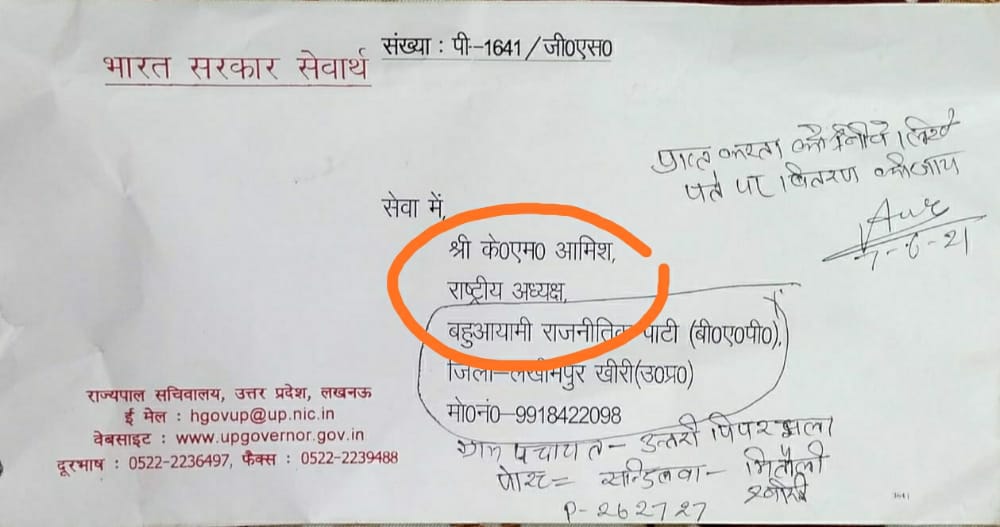 संख्या : पी-1641 / जी0एस0
भारत सरकार सेवार्थ
प्राप्त करता को नीचे लिखे
पते पर वितरण की जाय
7-6-21
सेवा में,
श्री के0एम0 आमिश,
राष्ट्रीय अध्यक्ष,
बहुआयामी राजनीतिक पाटी (बी0ए0पी0),
जिला-लखीमपुर खीरी(उ0प्र0)
मो0नं0-9918422098
राज्यपाल सचिवालय, उत्तर प्रदेश, लखनऊ
ई मेल : hgovup@up.nic.in
वेबसाइट : www.upgovernor.gov.in
दूरभाष : 0522-2236497, फैक्स : 0522-2239488
ग्राम पंचायत - उत्तरी पिपर झला
पोस्ट = सन्डिलवा - मितौली
खीरी
P-262727
1641